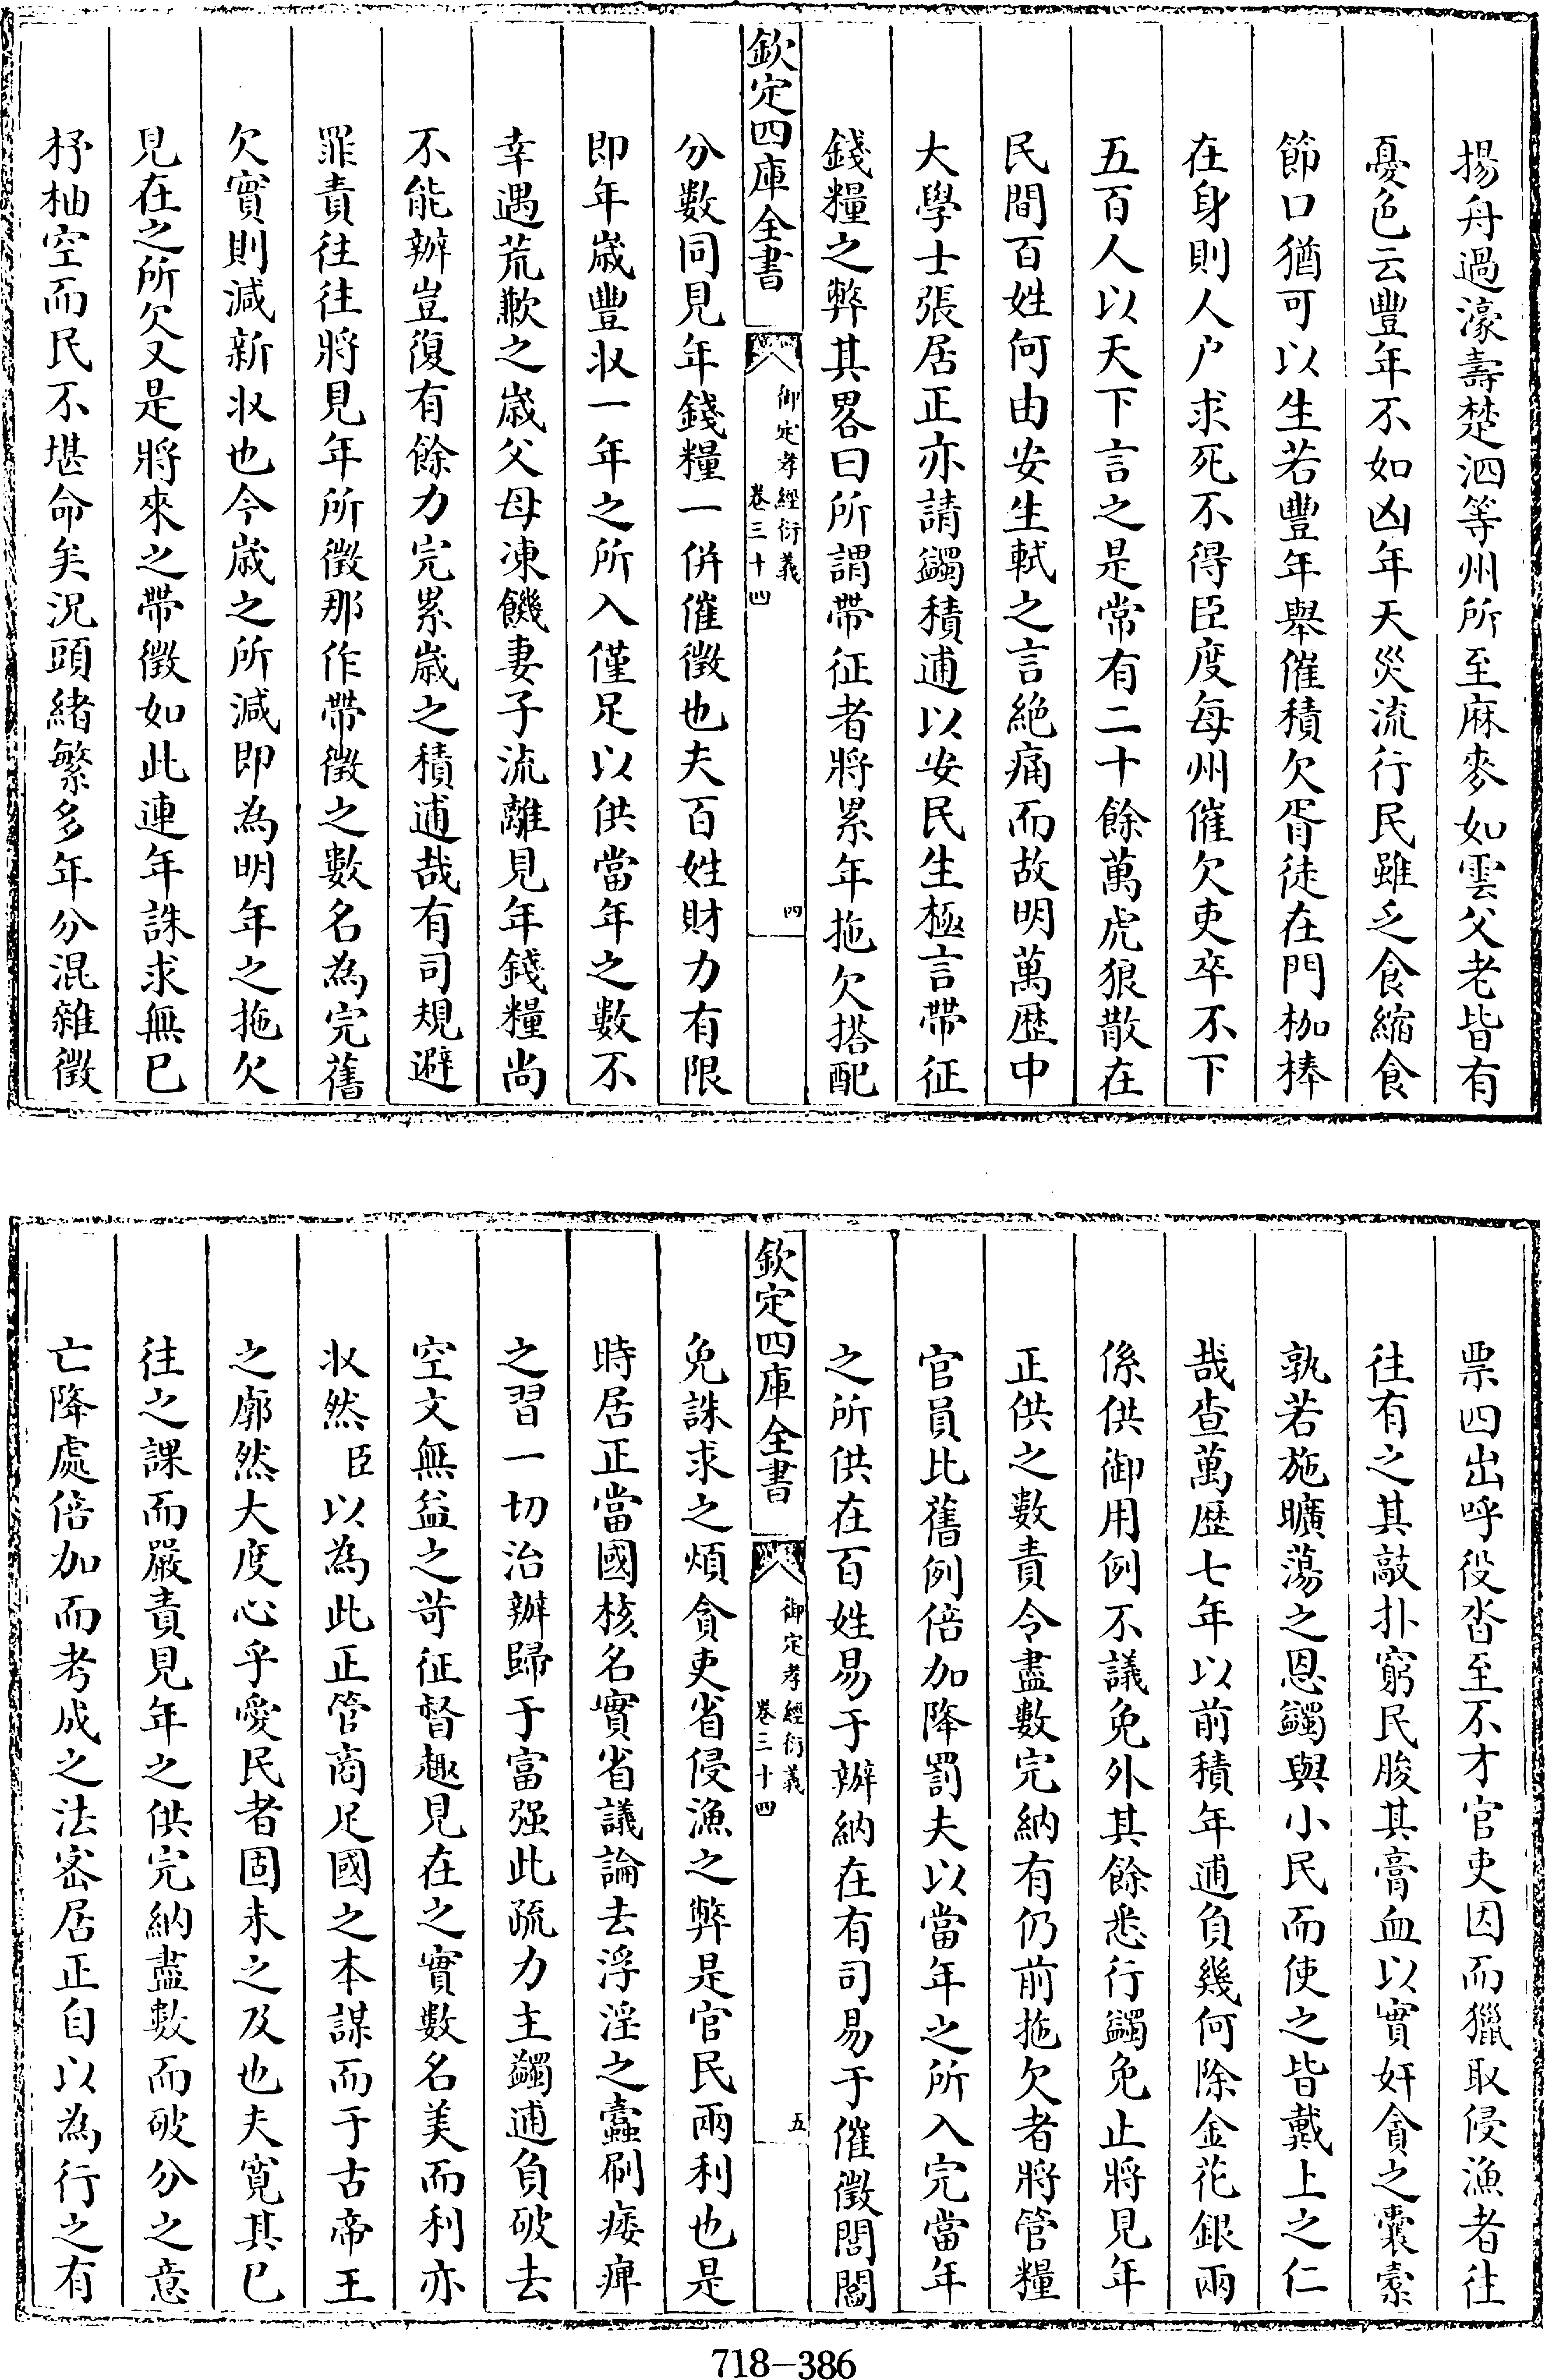 揚舟過濠壽楚泗等州所至麻麥如雲父老皆有
憂色云豐年不如凶年天災流行民雖乏食縮食
節口猶可以生若豐年舉催積欠胥徒在門枷棒
在身則人户求死不得臣度每州催欠吏卒不下
五百人以天下言之是常有二十餘萬虎狼散在
民間百姓何由安生軾之言絶痛而故明萬歴中
大學士張居正亦請蠲積逋以安民生極言帶征
錢糧之弊其畧曰所謂帶征者將累年拖欠搭配
欽定四庫全書
御定孝經衍義
卷三十四
四
分數同見年錢糧一併催徵也夫百姓財力有限
即年歲豐收一年之所入僅足以供當年之數不
幸遇荒歉之歲父母凍饑妻子流離見年錢糧尚
不能辦豈復有餘力完累歲之積逋哉有司規避
罪責往往將見年所徵那作帶徵之數名為完舊
欠實則減新收也今歲之所減即為明年之拖欠
見在之所欠又是將來之帶徵如此連年誅求無已
杼柚空而民不堪命矣況頭緒繁多年分混雜徵
票四出呼役沓至不才官吏因而獵取侵漁者往
往有之其敲扑窮民朘其膏血以實奸貪之囊槖
孰若施曠蕩之恩蠲與小民而使之皆戴上之仁
哉查萬歴七年以前積年逋負幾何除金花銀兩
係供御用例不議免外其餘悉行蠲免止將見年
正供之數責令盡數完納有仍前拖欠者將管糧
官員比舊例倍加降罰夫以當年之所入完當年
之所供在百姓易于辦納在有司易于催徵閭閻
欽定四庫全書
御定孝經衍義
卷三十四
五
免誅求之煩貪吏省侵漁之弊是官民兩利也是
時居正當國核名實省議論去浮淫之蠹刷痿痺
之習一切治辦歸于富强此疏力主蠲逋負破去
空文無益之苛征督趣見在之實數名美而利亦
收然臣以為此正管商足國之本謀而于古帝王
之廓然大度心乎愛民者固未之及也夫寛其已
往之課而嚴責見年之供完納盡數而破分之意
亡降處倍加而考成之法密居正自以為行之有
718-386